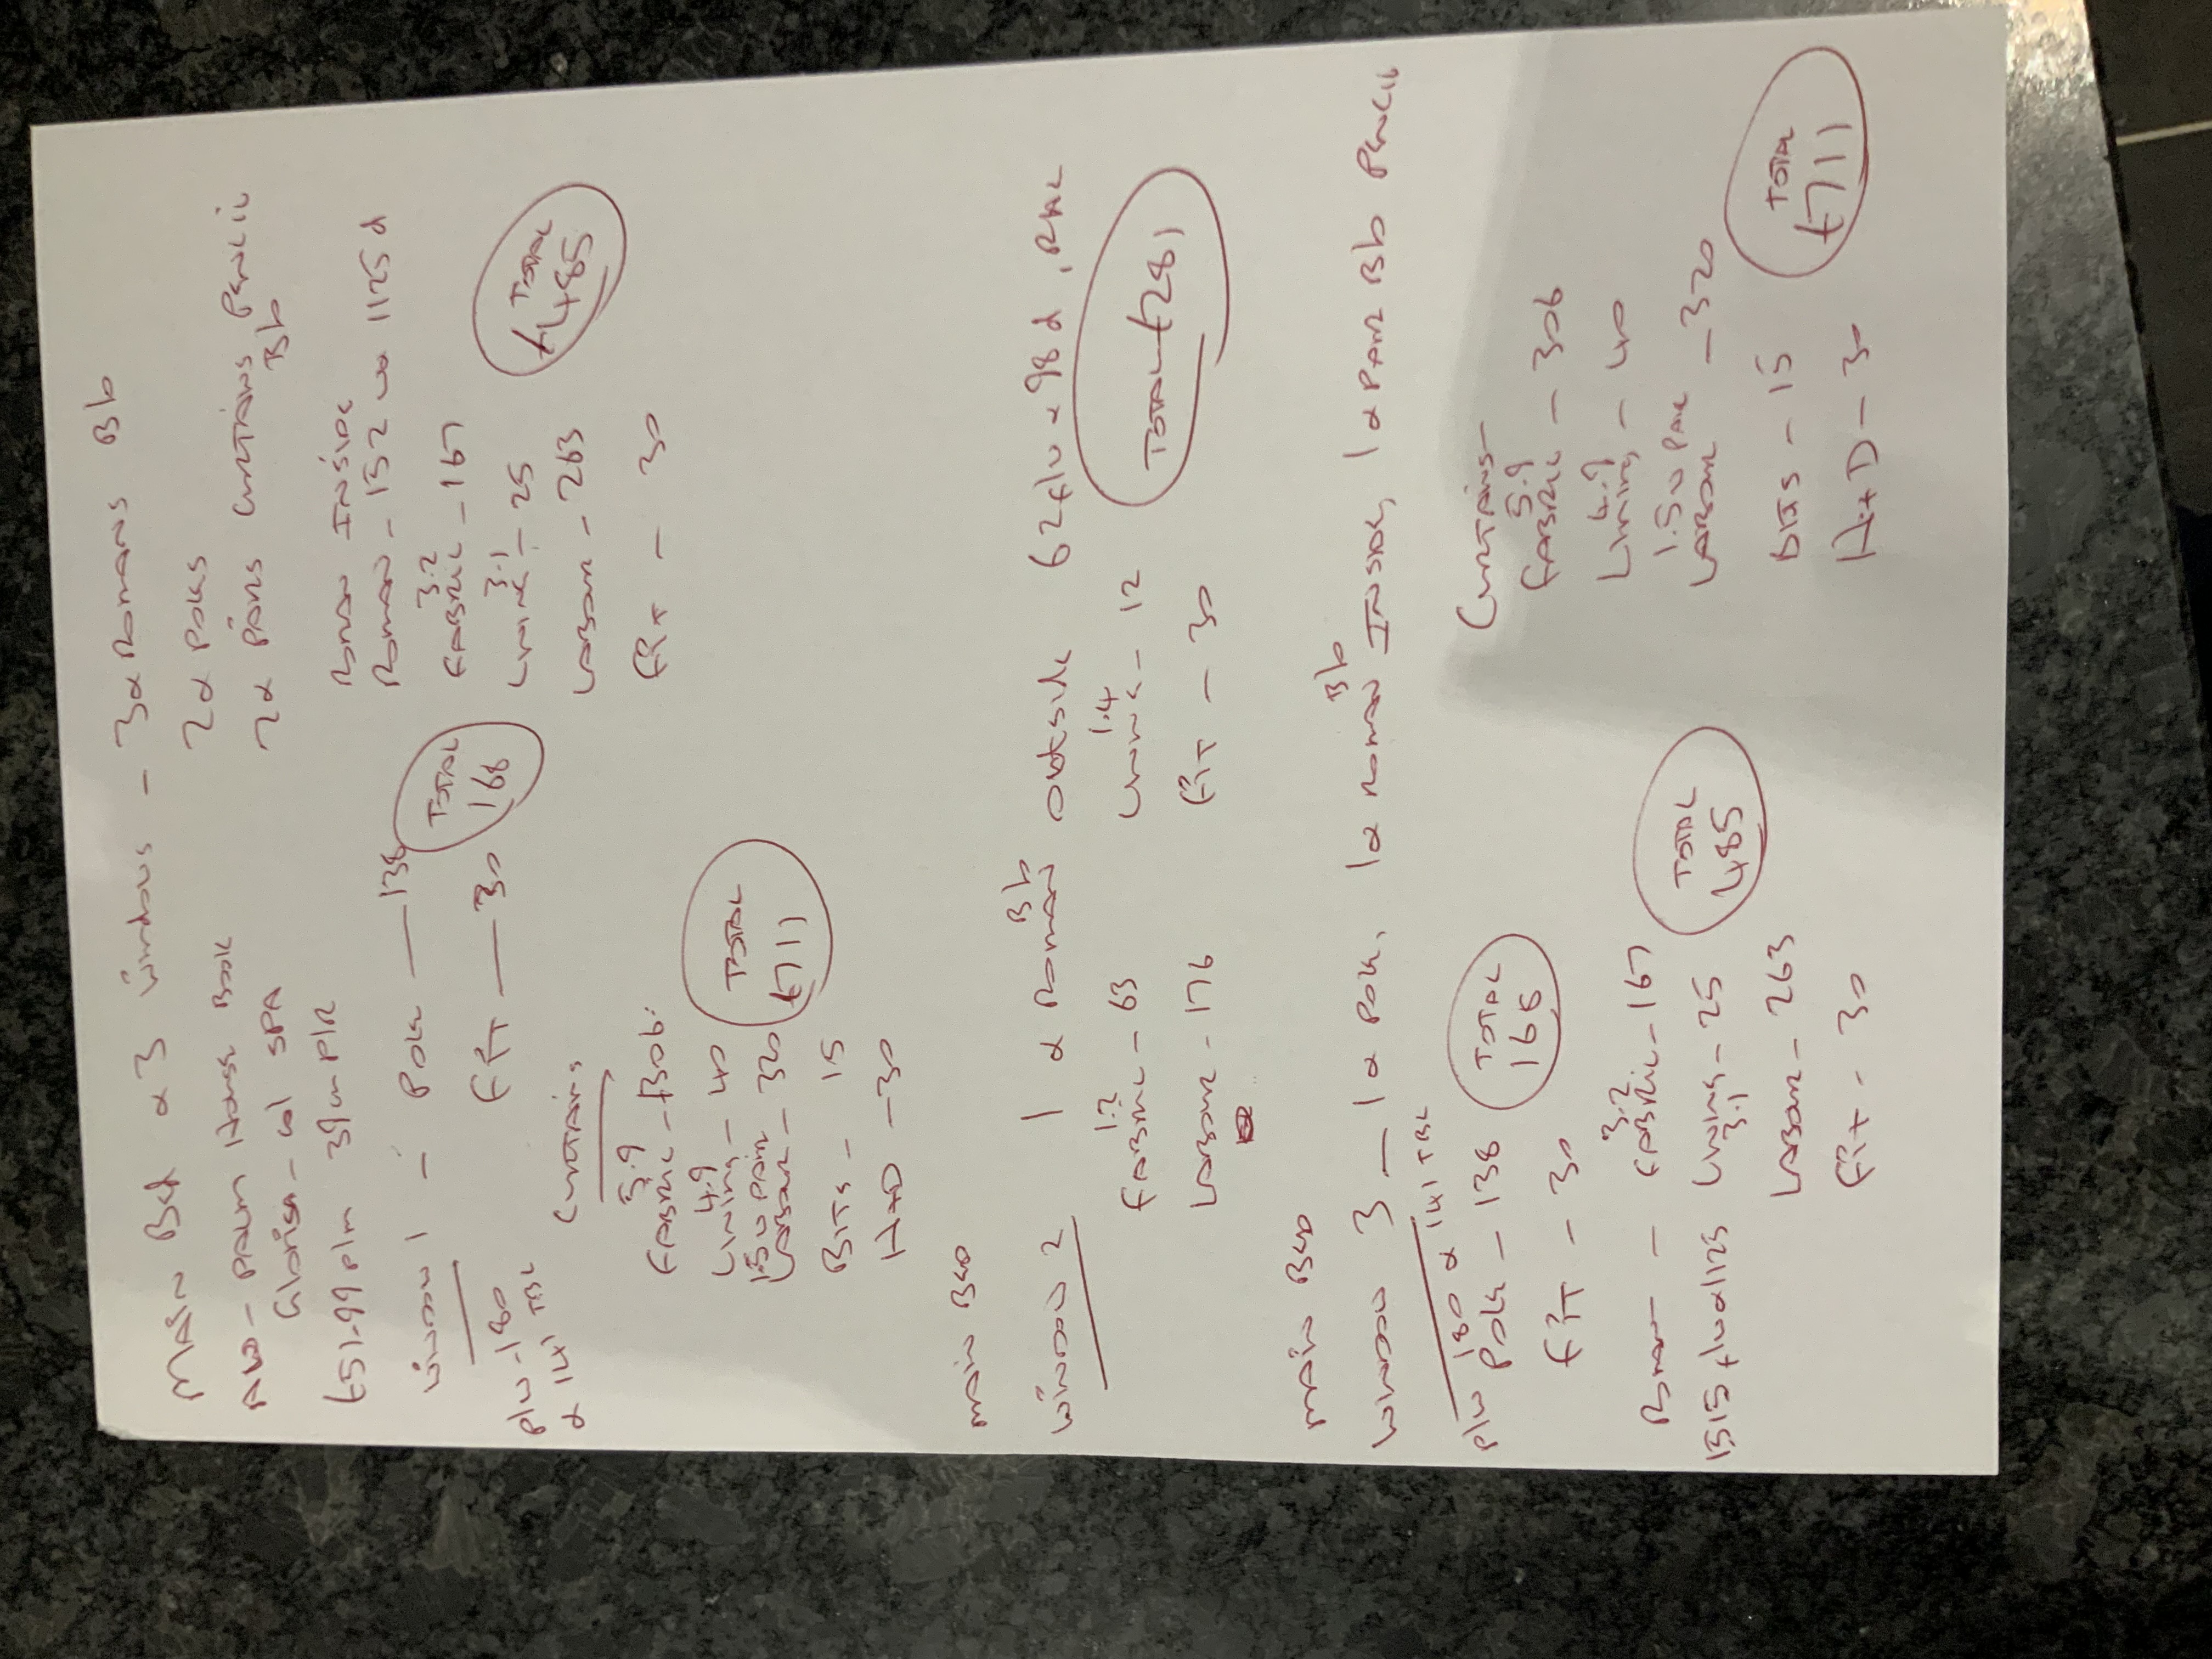 MAIN Bed x 3 windows - 3x Romans Bb
2x Poles
2x Pairs Curtains Pencil Bb
Book
Col SPA
£51.99 p/m 39cm P/R
Window 1 - Pole - 138
Fit - 30
TOTAL 168
P/W - 180
x 141 TBL
Roman Inside
Roman - 152 w x 1125 d
3.2
FABRIC - 167
3.1
Lining - 25
Labour - 263
Fit - 30
TOTAL £485
Curtains
5.9
FABRIC - £306.
4.9
Lining - 40
1.5 w Pair
Labour - 320
BITS - 15
H+D - 30
TOTAL £711
main Bed
Window 2 1 x Roman Bb outside 62 f/w x 98 d,
1.2
FABRIC - 63
1.4
Lining - 12
Labour - 176
Fit - 30
TOTAL - £281
main Bed
Window 3 - 1x Pole, 1x Roman Bb Inside, 1x Pair Bb Pencil
P/W 180 x 141 TBL
Pole - 138
Fit - 30
TOTAL 168
Roman - 3.2
FABRIC - 167
Lining - 25
3.1
Labour - 263
Fit - 30
TOTAL 485
Curtains -
5.9
FABRIC - 306
4.9
Lining - 40
1.5 w Pair
Labour - 320
BITS - 15
H+D - 30
TOTAL £711